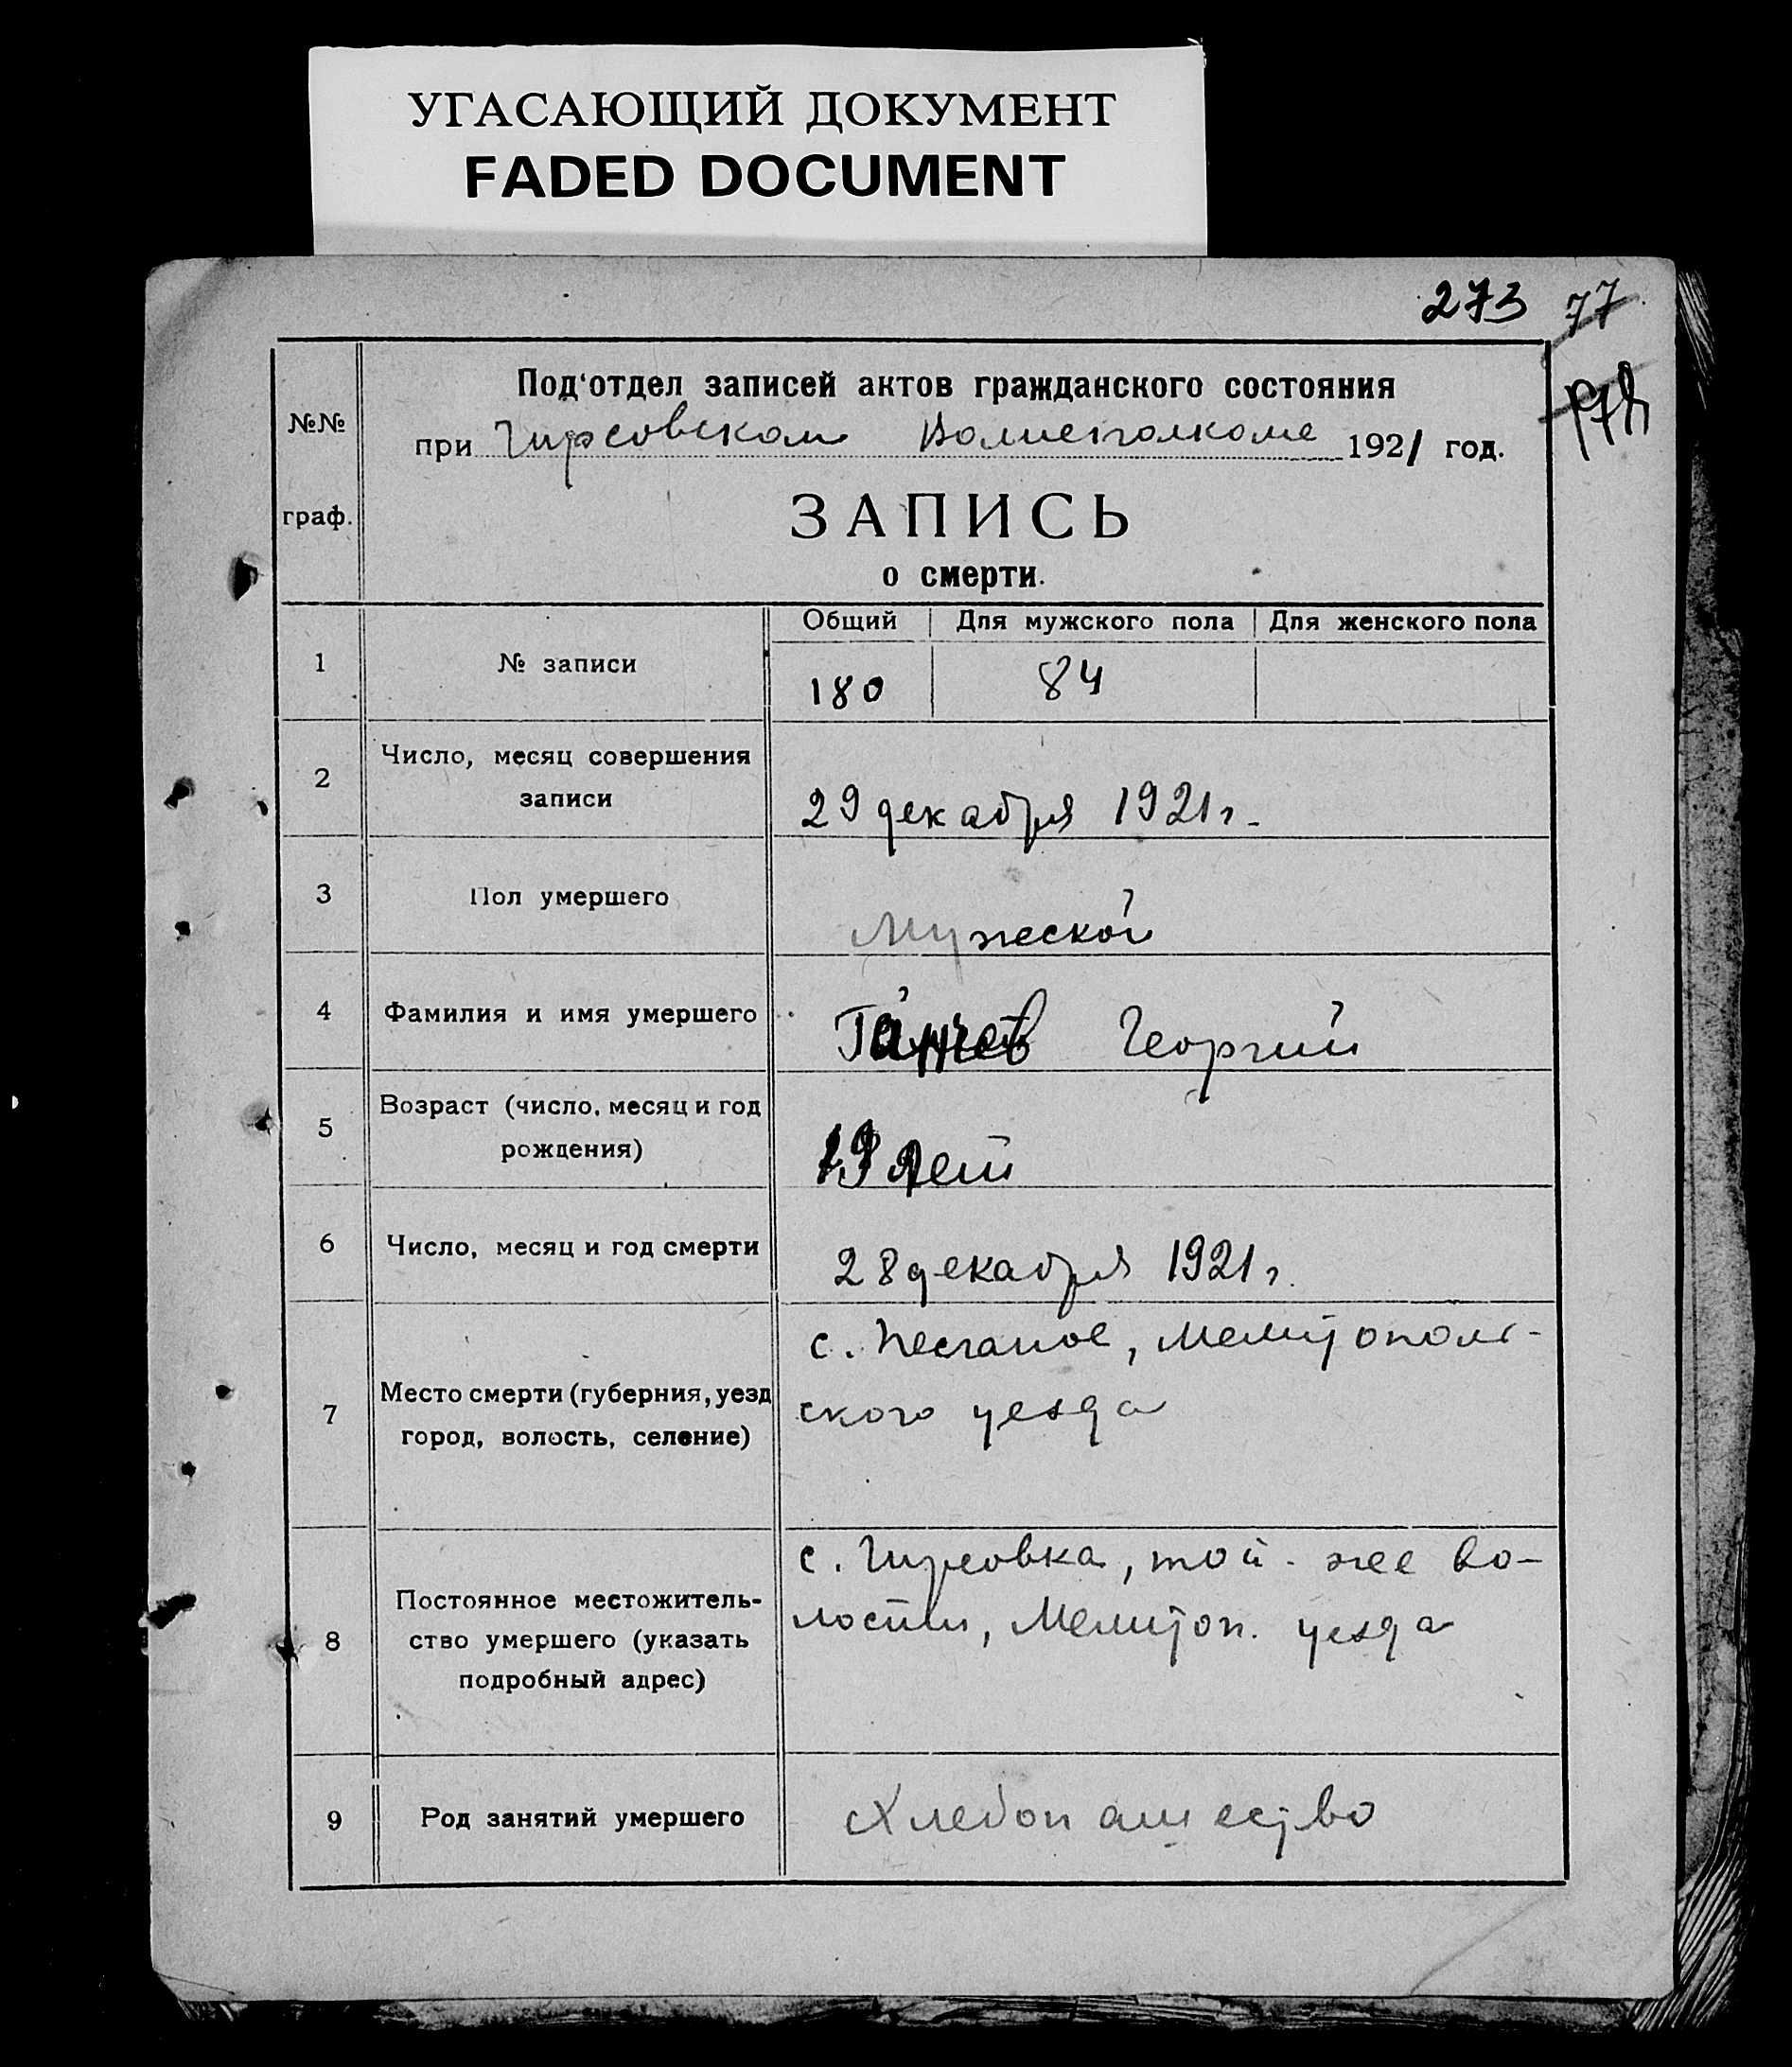 УГАСАЮЩИЙ ДОКУМЕНТ
FADED DOCUMENT
273 77
№№
граф.
Под‘отдел записей актов гражданского состояния
при Гирсовском Волисполкоме 1921 год.
ЗАПИСЬ
о смерти.
Общий Для мужского пола Для женского пола
1 № записи 180 84
2 Число, месяц совершения
записи
29 декабря 1921 г.
3 Пол умершего Мужеской
4 Фамилия и имя умершего Георгий
5 Возраст (число, месяц и год
рождения)
19 лет
6 Число, месяц и год смерти 28 декабря 1921 г.
7 Место смерти (губерния, уезд
город, волость, селение)
с. Песчаное, Мелитополь-
ского уезда
8 Постоянное местожитель-
ство умершего (указать
подробный адрес)
с. Гирсовка, той-же во-
лости, Мелитоп. уезда
9 Род занятий умершего Хлебопашество